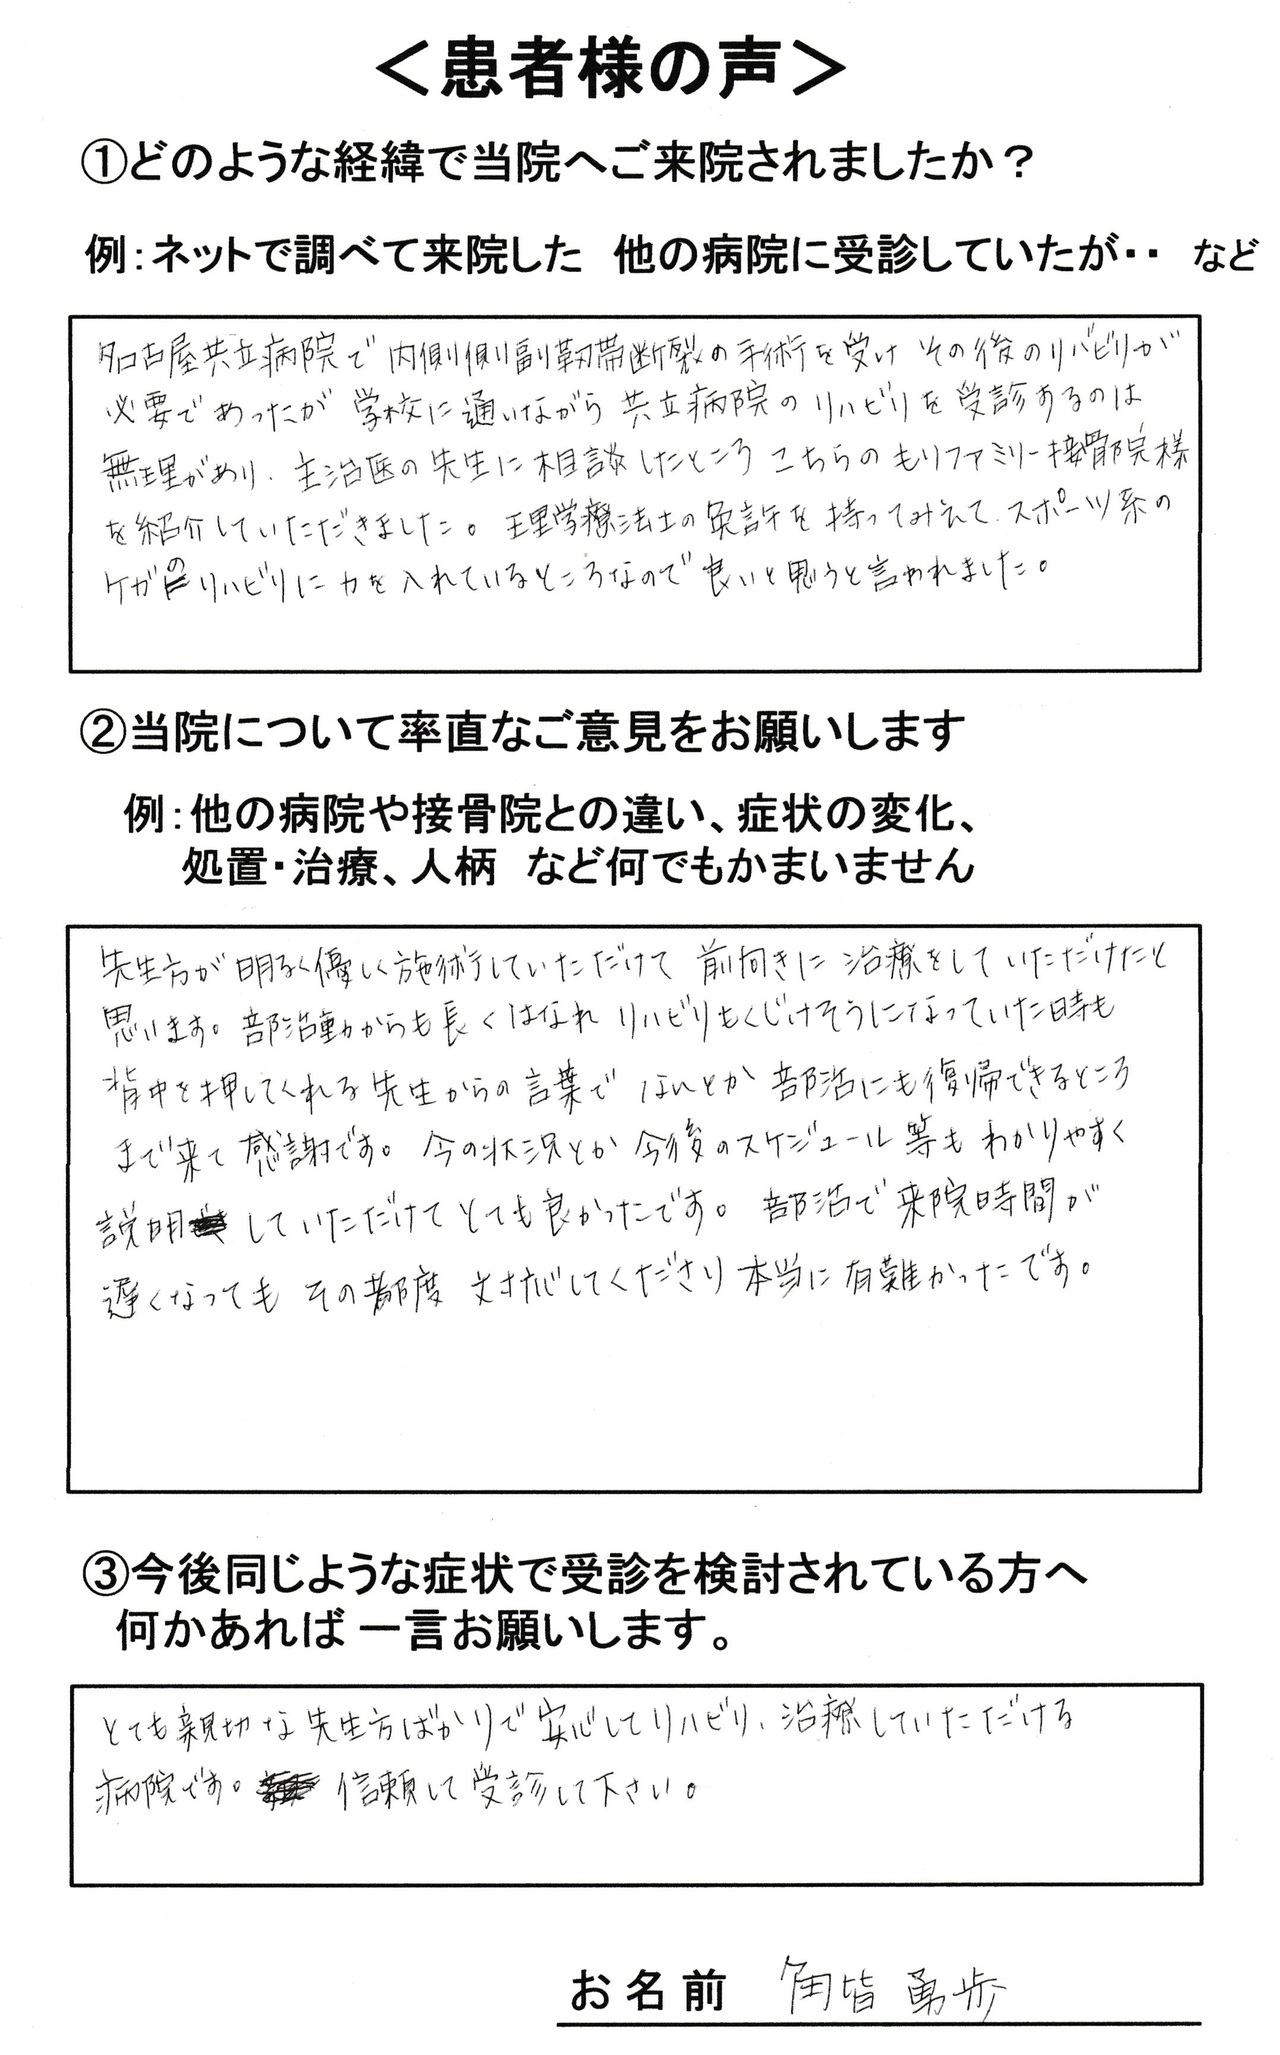 ＜患者様の声＞
①どのような経緯で当院へご来院されましたか？
例：ネットで調べて来院した　他の病院に受診していたが・・　など
名古屋共立病院で 内側側副靭帯断裂の手術を受け その後のリハビリが
必要であったが 学校に通いながら 共立病院の リハビリを 受診するのは
無理があり、主治医の先生に相談したところ こちらの もりファミリー接骨院様
を紹介していただきました。 理学療法士の免許を 持ってみえて、スポーツ系の
ケガのリハビリに力を入れているところなので 良いと思うと言われました。
②当院について率直なご意見をお願いします
例：他の病院や接骨院との違い、症状の変化、
処置・治療、人柄　など何でもかまいません
先生方が明るく優しく施術していただけて 前向きに 治療をして いただけたと
思います。部活動からも長くはなれ リハビリもくじけそうになっていた時も
背中を押してくれる先生からの言葉で なんとか 部活にも復帰できるところ
まで来て 感謝です。 今の状況とか 今後のスケジュール 等も わかりやすく
説明 していただけて とても良かったです。 部活で 来院時間が
遅くなっても その都度 対応してくださり 本当に有難かったです。
③今後同じような症状で受診を検討されている方へ
何かあれば 一言お願いします。
とても親切な先生方ばかりで 安心してリハビリ、治療していただける
病院です。 信頼して 受診して下さい。
お名前 角皆 勇歩